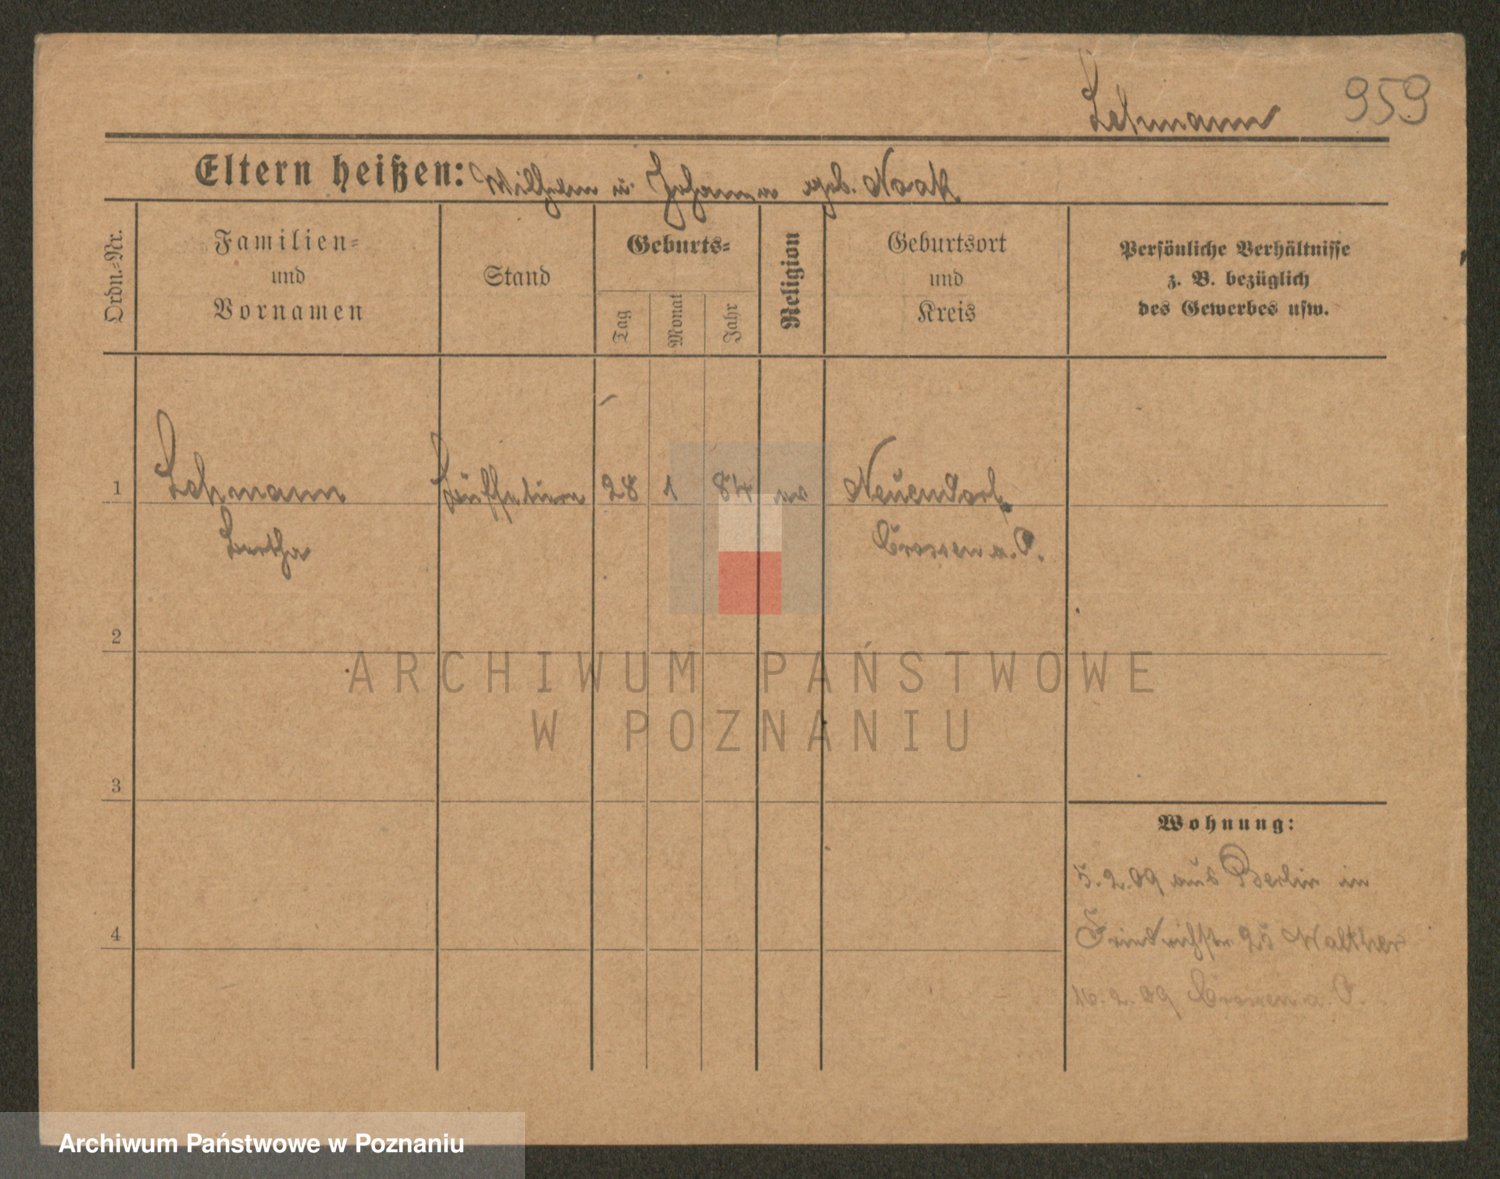 Lehmann 959
Eltern heißen: Wilhelm u. Johanna geb. Noak
Ordn.-Nr.
Familien-
und
Vornamen
Stand
Geburts-
Tag
Monat
Jahr
Religion
Geburtsort
und
Kreis
Persönliche Verhältnisse
z. B. bezüglich
des Gewerbes usw.
1 Lehmann Büffetiere 28 1 84 ev Neuendorf
Bertha Crossen a. O.
2
3
4
Wohnung:
5.2.09 aus Berlin in
Friedrichstr 25 Walther
16.2.09 Crossen a. O.
ARCHIWUM PAŃSTWOWE
W POZNANIU
Archiwum Państwowe w Poznaniu